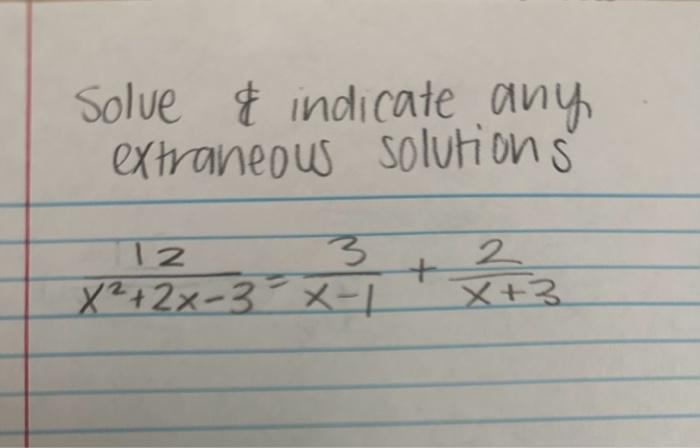 Solve & indicate any
extraneous solutions
12/(x²+2x-3) = 3/(x-1) + 2/(x+3)